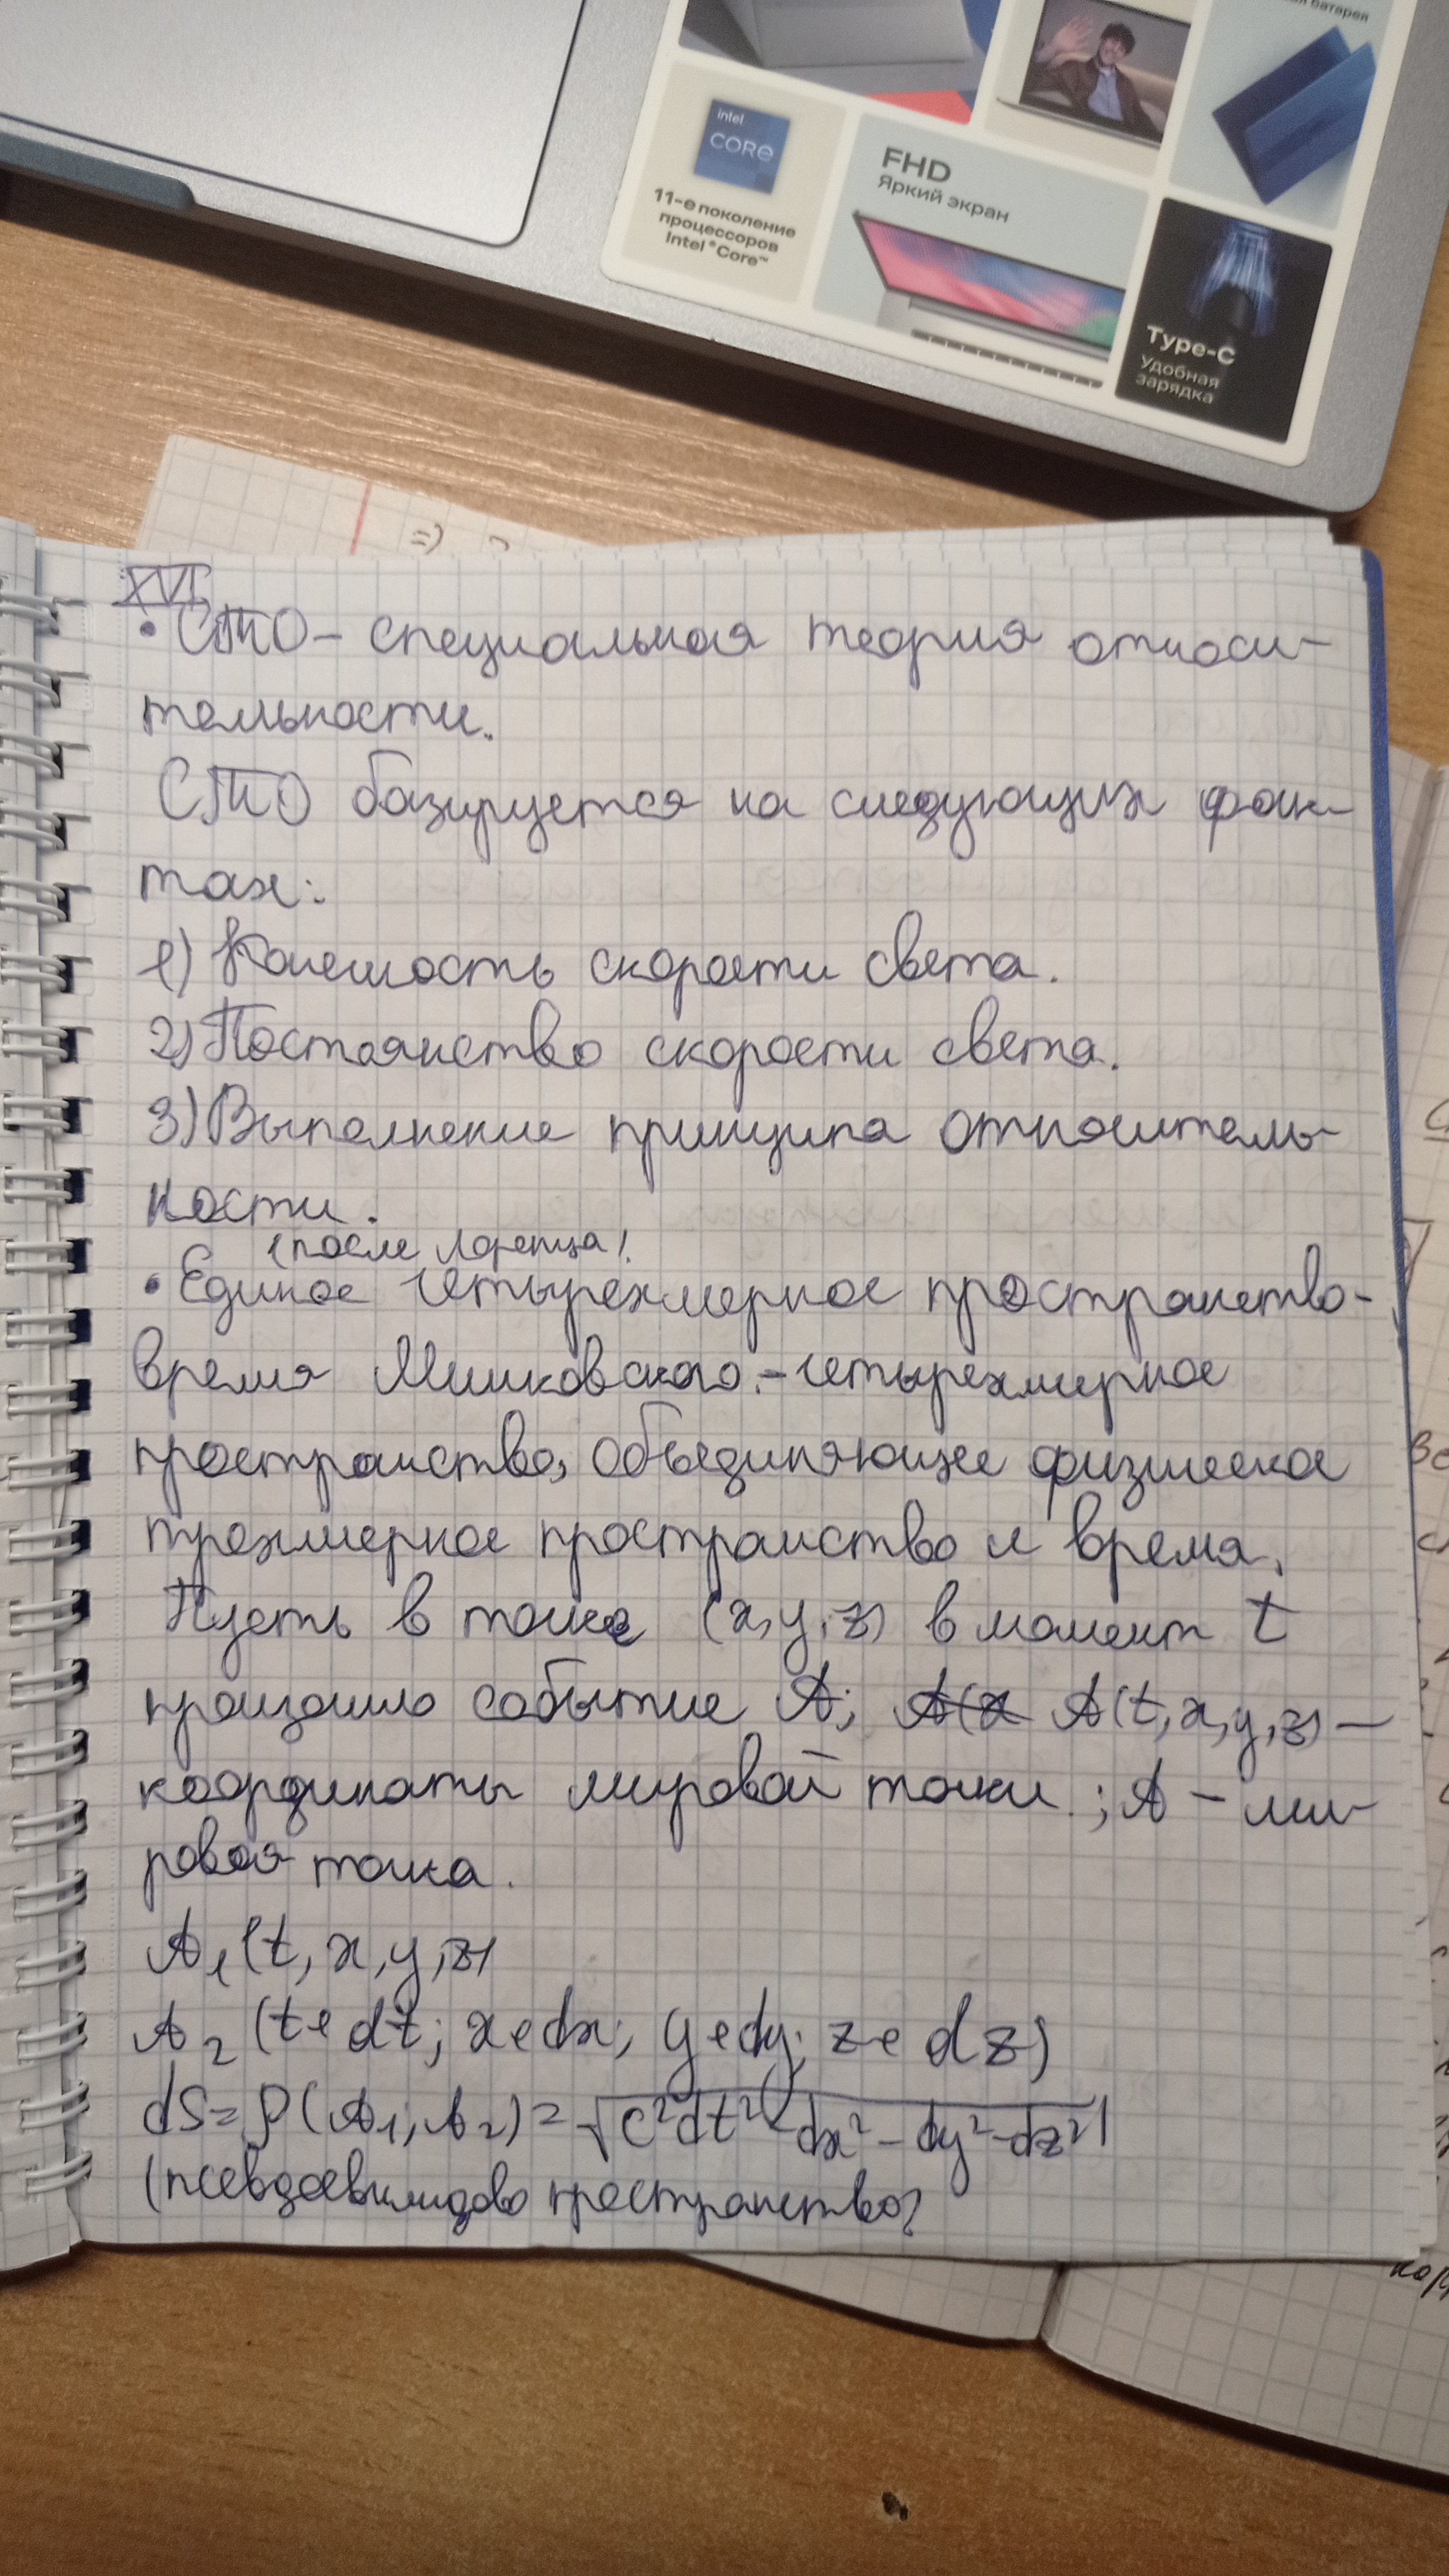 ая батарея
intel
CORE
11-е поколение
процессоров
Intel® Core™
FHD
Яркий экран
Type-C
Удобная
зарядка
=)
XVI
• СТО - специальная теория относи-
тельности.
СТО базируется на следующих фак-
тах:
1) Конечность скорости света.
2) Постоянство скорости света.
3) Выполнение принципа относитель-
ности.
(после Лоренца)
• Единое четырехмерное пространство-
время Минковского. - четырехмерное
пространство, объединяющее физическое
трехмерное пространство и время.
Пусть в точке (x, y, z) в момент t
произошло событие A; A(x A(t, x, y, z) -
координаты мировой точки.; A - ми-
ровая точка.
A₁(t, x, y, z)
A₂(t+dt; x+dx; y+dy; z+dz)
dS=ρ(A₁; A₂)=√c²dt²-dx²-dy²-dz²
(псевдоевклидово пространство)